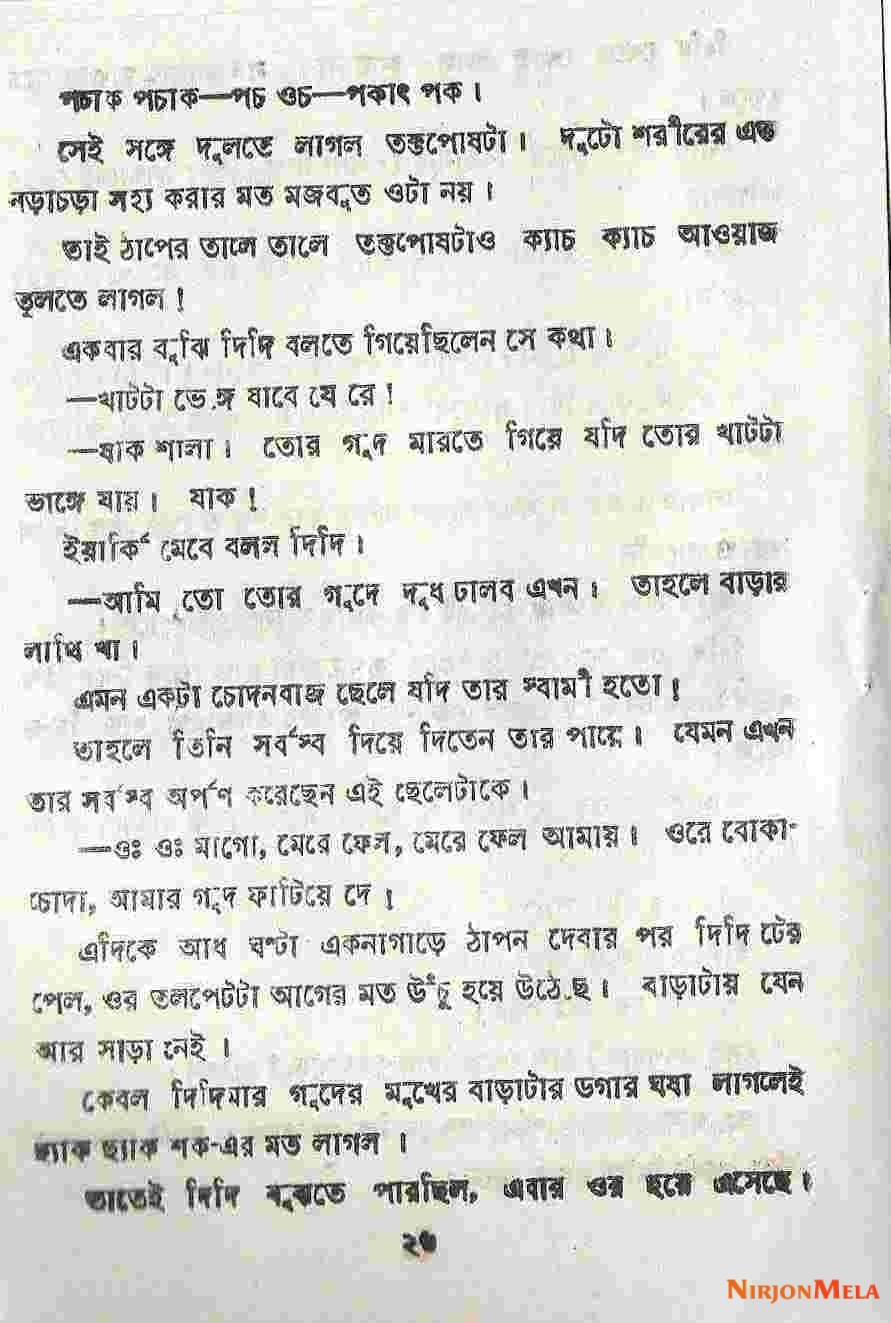 পচাক পচাক—পচ ওচ—পকাৎ পক।
সেই সঙ্গে দুলতে লাগল তক্তপোষটা। দুটো শরীরের এত
নড়াচড়া সহ্য করার মত মজবুত ওটা নয়।
তাই ঠাপের তালে তালে তক্তপোষটাও ক্যাচ ক্যাচ আওয়াজ
তুলতে লাগল!
একবার বুঝি দিদি বলতে গিয়েছিলেন সে কথা।
—খাটটা ভেঙ্গে যাবে যে রে!
—যাক শালা। তোর গুদ মারতে গিয়ে যদি তোর খাটটা
ভাঙ্গে যায়। যাক!
ইয়ার্কি মেরে বলল দিদি।
—আমি তো তোর গুদে দুধ ঢালব এখন। তাহলে বাড়ার
লাথি খা।
এমন একটা চোদনবাজ ছেলে যদি তার স্বামী হতো!
তাহলে তিনি সর্বস্ব দিয়ে দিতেন তার পায়ে। যেমন এখন
তার সর্বস্ব অর্পণ করেছেন এই ছেলেটাকে।
—ওঃ ওঃ মাগো, মেরে ফেল, মেরে ফেল আমায়। ওরে বোকা-
চোদা, আমার গুদ ফাটিয়ে দে!
এদিকে আধ ঘণ্টা একনাগাড়ে ঠাপন দেবার পর দিদি টের
পেল, ওর তলপেটটা আগের মত উঁচু হয়ে উঠেছে। বাড়াটায় যেন
আর সাড়া নেই।
কেবল দিদিমার গুদের মুখের বাড়াটার ডগার ঘষা লাগলেই
ছ্যাক ছ্যাক শক-এর মত লাগল।
তাতেই দিদি বুঝতে পারছিল, এবার ওর হয়ে এসেছে।
NIRJONMELA